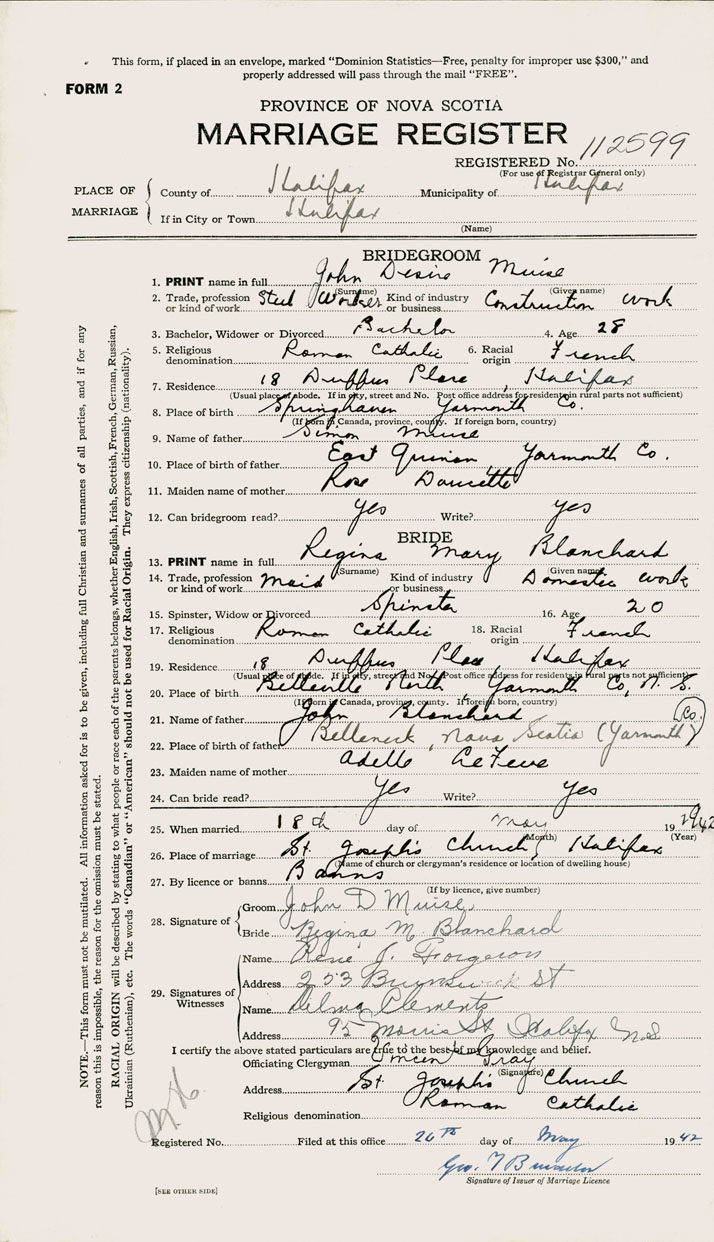 This form, if placed in an envelope, marked "Dominion Statistics—Free, penalty for improper use $300," and
properly addressed will pass through the mail "FREE".
FORM 2
PROVINCE OF NOVA SCOTIA
MARRIAGE REGISTER
REGISTERED No. 112599
(For use of Registrar General only)
PLACE OF MARRIAGE
County of Halifax Municipality of Halifax
If in City or Town Halifax
(Name)
BRIDEGROOM
1. PRINT name in full John Desire Muise
(Surname) (Given name)
2. Trade, profession or kind of work Steel Worker Kind of industry or business Construction work
3. Bachelor, Widower or Divorced Bachelor 4. Age 28
5. Religious denomination Roman Catholic 6. Racial origin French
7. Residence 18 Duffus Place, Halifax
(Usual place of abode. If in city, street and No. Post office address for residents in rural parts not sufficient)
8. Place of birth Springhaven Yarmouth Co.
(If born in Canada, province, county. If foreign born, country)
9. Name of father Simon Muise
10. Place of birth of father East Quinan Yarmouth Co.
11. Maiden name of mother Rose Doucette
12. Can bridegroom read? Yes Write? Yes
BRIDE
13. PRINT name in full Regina Mary Blanchard
(Surname) (Given name)
14. Trade, profession or kind of work Maid Kind of industry or business Domestic work
15. Spinster, Widow or Divorced Spinster 16. Age 20
17. Religious denomination Roman Catholic 18. Racial origin French
19. Residence 18 Duffus Place, Halifax
(Usual place of abode. If in city, street and No. Post office address for residents in rural parts not sufficient)
20. Place of birth Belleville North, Yarmouth Co, N. S.
(If born in Canada, province, county. If foreign born, country)
21. Name of father John Blanchard
22. Place of birth of father Belleneck, Nova Scotia (Yarmouth Co.)
23. Maiden name of mother Adelle LeFeve
24. Can bride read? Yes Write? Yes
25. When married 18th day of May 1942
(Month) (Year)
26. Place of marriage St. Joseph's Church, Halifax
(Name of church or clergyman's residence or location of dwelling house)
27. By licence or banns Banns
(If by licence, give number)
28. Signature of
Groom John D Muise
Bride Regina M. Blanchard
29. Signatures of Witnesses
Name René J. Forgeron
Address 253 Brunswick St
Name Delma Clements
Address 95 Morris St. Halifax N.S.
I certify the above stated particulars are true to the best of my knowledge and belief.
Officiating Clergyman Gray
(Signature)
Address St. Joseph's Church
Religious denomination Roman Catholic
Registered No. Filed at this office 26th day of May 1942
Geo.
Signature of Issuer of Marriage Licence
[SEE OTHER SIDE]
NOTE.—This form must not be mutilated. All information asked for is to be given, including full Christian and surnames of all parties, and if for any
reason this is impossible, the reason for the omission must be stated.
RACIAL ORIGIN will be described by stating to what people or race each of the parents belongs, whether English, Irish, Scottish, French, German, Russian,
Ukrainian (Ruthenian), etc. The words "Canadian" or "American" should not be used for Racial Origin. They express citizenship (nationality).